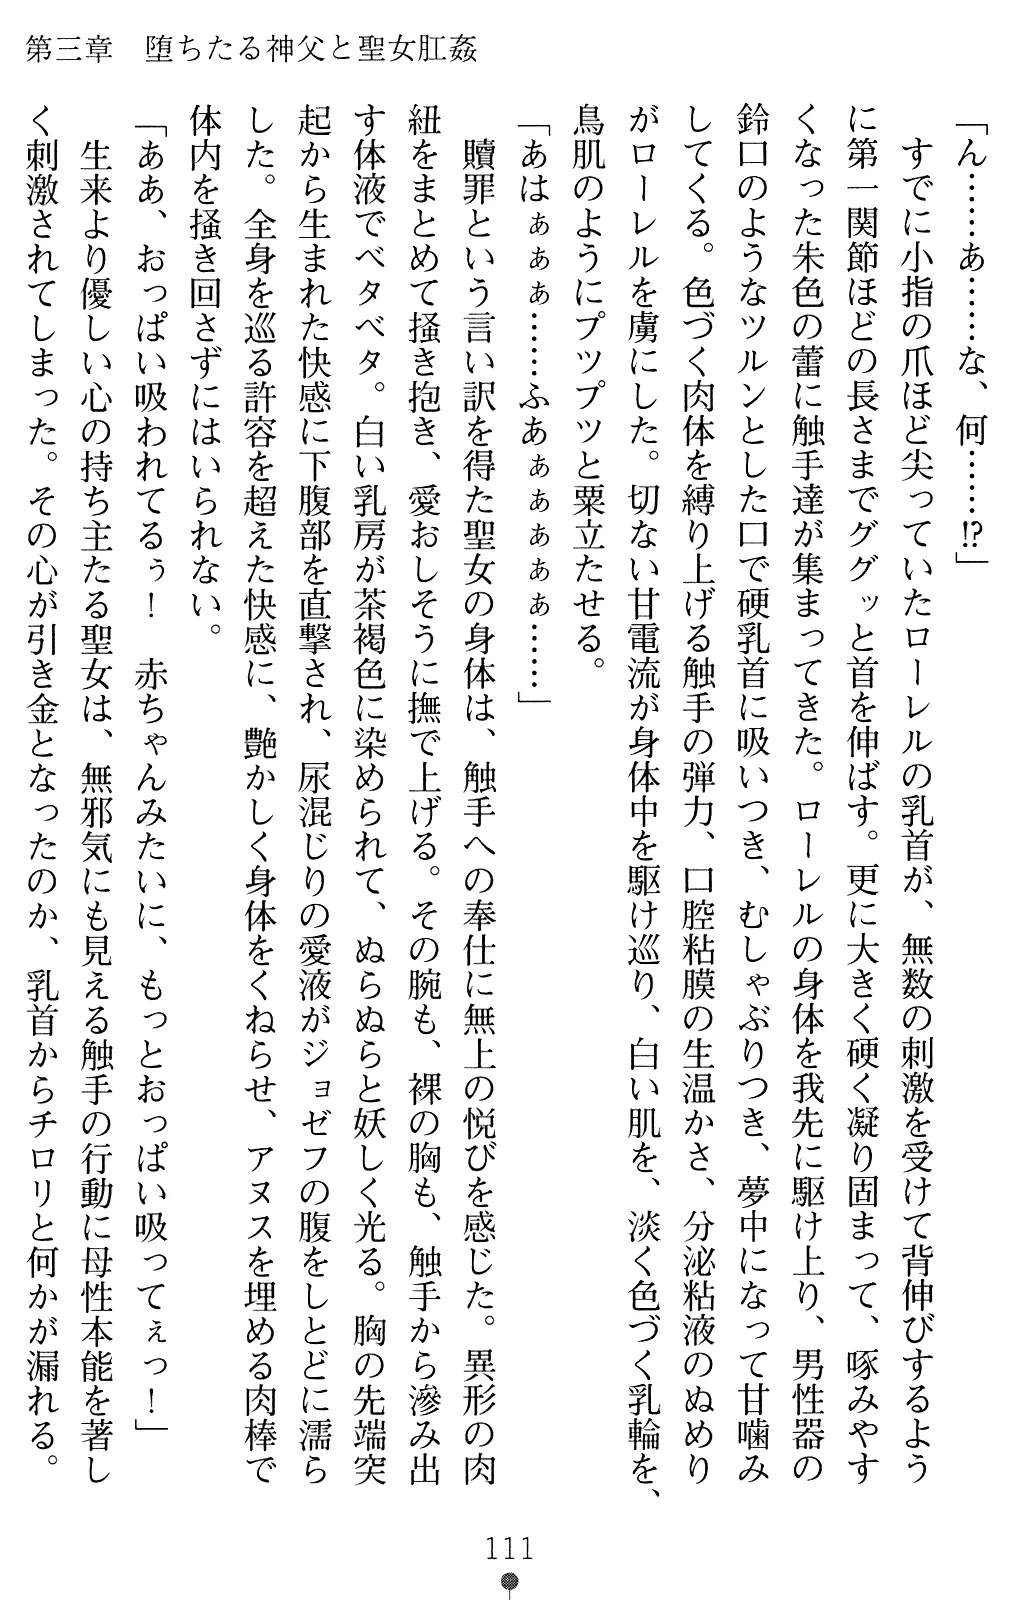 第三章　堕ちたる神父と聖女肛姦
「ん……あ……な、何……!?」
　すでに小指の爪ほど尖っていたローレルの乳首が、無数の刺激を受けて背伸びするよう
に第一関節ほどの長さまでググッと首を伸ばす。更に大きく硬く凝り固まって、啄みやす
くなった朱色の蕾に触手達が集まってきた。ローレルの身体を我先に駆け上り、男性器の
鈴口のようなツルンとした口で硬乳首に吸いつき、むしゃぶりつき、夢中になって甘噛み
してくる。色づく肉体を縛り上げる触手の弾力、口腔粘膜の生温かさ、分泌粘液のぬめり
がローレルを虜にした。切ない甘電流が身体中を駆け巡り、白い肌を、淡く色づく乳輪を、
鳥肌のようにプツプツと粟立たせる。
「あはぁぁぁ……ふあぁぁぁぁぁ……」
　贖罪という言い訳を得た聖女の身体は、触手への奉仕に無上の悦びを感じた。異形の肉
紐をまとめて掻き抱き、愛おしそうに撫で上げる。その腕も、裸の胸も、触手から滲み出
す体液でベタベタ。白い乳房が茶褐色に染められて、ぬらぬらと妖しく光る。胸の先端突
起から生まれた快感に下腹部を直撃され、尿混じりの愛液がジョゼフの腹をしとどに濡ら
した。全身を巡る許容を超えた快感に、艶かしく身体をくねらせ、アヌスを埋める肉棒で
体内を掻き回さずにはいられない。
「ああ、おっぱい吸われてるぅ！　赤ちゃんみたいに、もっとおっぱい吸ってぇっ！」
　生来より優しい心の持ち主たる聖女は、無邪気にも見える触手の行動に母性本能を著し
く刺激されてしまった。その心が引き金となったのか、乳首からチロリと何かが漏れる。
111